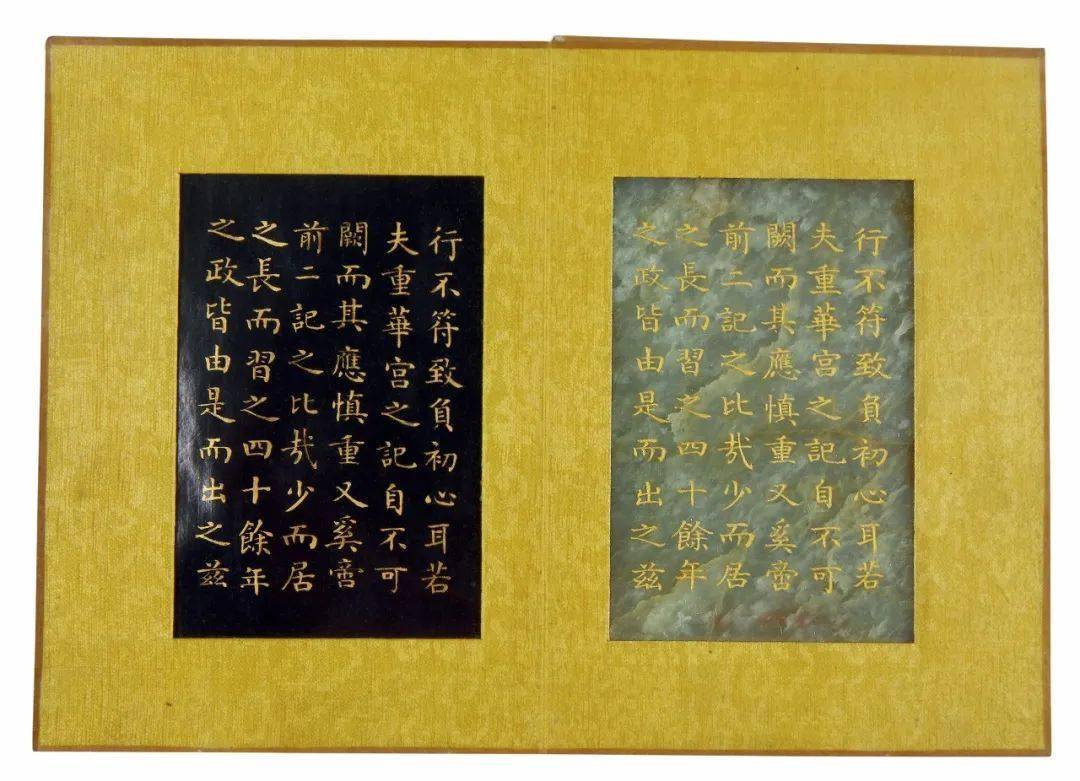 行不符致負初心耳若
夫重華宮之記自不可
闕而其應慎重又奚啻
前二記之比哉少而居
之長而習之四十餘年
之政皆由是而出之茲
行不符致負初心耳若
夫重華宮之記自不可
闕而其應慎重又奚啻
前二記之比哉少而居
之長而習之四十餘年
之政皆由是而出之茲